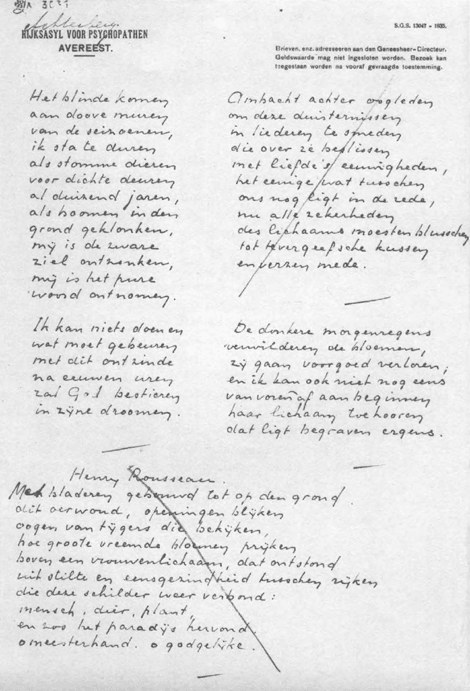 Achterberg.
RIJKSASYL VOOR PSYCHOPATHEN
AVEREEST.
S.G.S. 13047 - 1935.
Brieven, enz. adresseeren aan den Geneesheer-Directeur.
Geldswaarde mag niet ingesloten worden. Bezoek kan
toegestaan worden na vooraf gevraagde toestemming.
Het blinde komen
aan doove muren
van de seizoenen,
ik sta te duren
als stomme dieren
voor dichte deuren
al duizend jaren,
als boomen in den
grond geklonken,
mij is de zware
ziel ontzonken,
mij is het pure
woord ontnomen.
Ik kan niets doen en
wat moet gebeuren
met dit ontzinde
na eeuwen uren
zal God bestieren
in zijne droomen.
Ambacht achter oogleden
om deze duisternissen
in liederen te smeden
die over ze beslissen
met liefde's eeuwigheden,
het eenige wat tusschen
ons nog ligt in de rede,
nu alle zekerheden
des lichaams moesten blusschen
tot tevergeefsche kussen
en verzen mede.
De donkere morgenregens
verwilderen de bloemen,
zij gaan voorgoed verloren;
en ik kan ook niet nog eens
van voren af aan beginnen
haar lichaam toehooren
dat ligt begraven ergens.
Henry Rousseau.
Met bladeren gebouwd tot op den grond
dit oerwoud, openingen blijken
oogen van tijgers die bekijken,
hoe groote vreemde bloemen prijken
boven een vrouwenlichaam, dat ontstond
uit stilte en eensgezindheid tusschen rijken
die deze schilder weer verbond:
mensch, dier, plant,
en zoo het paradijs hervond.
o meesterhand. o godgelijke.